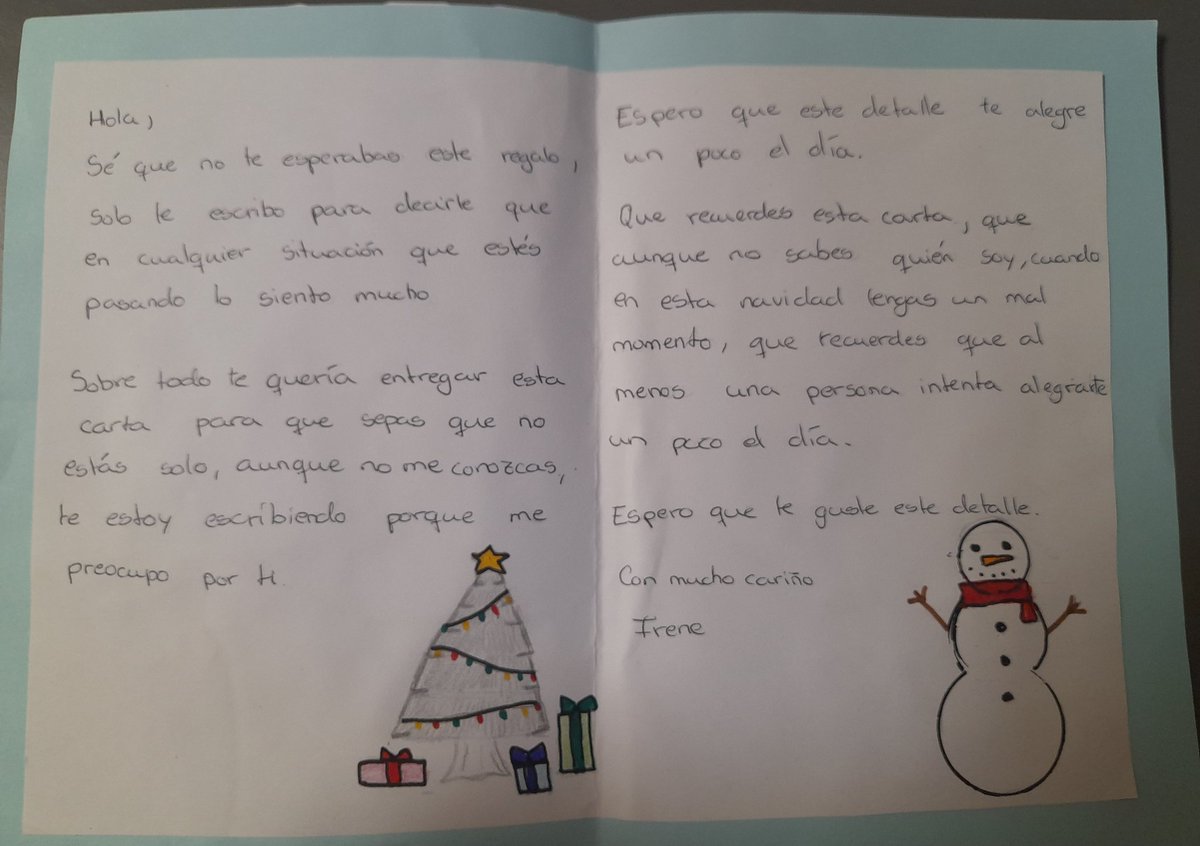 Hola,
Sé que no te esperabas este regalo,
solo te escribo para decirte que
en cualquier situación que estés
pasando lo siento mucho
Sobre todo te quería entregar esta
carta para que sepas que no
estás solo, aunque no me conozcas,
te estoy escribiendo porque me
preocupo por ti.
Espero que este detalle te alegre
un poco el día.
Que recuerdes esta carta, que
aunque no sabes quién soy, cuando
en esta navidad tengas un mal
momento, que recuerdes que al
menos una persona intenta alegrarte
un poco el día.
Espero que te guste este detalle.
Con mucho cariño
Irene